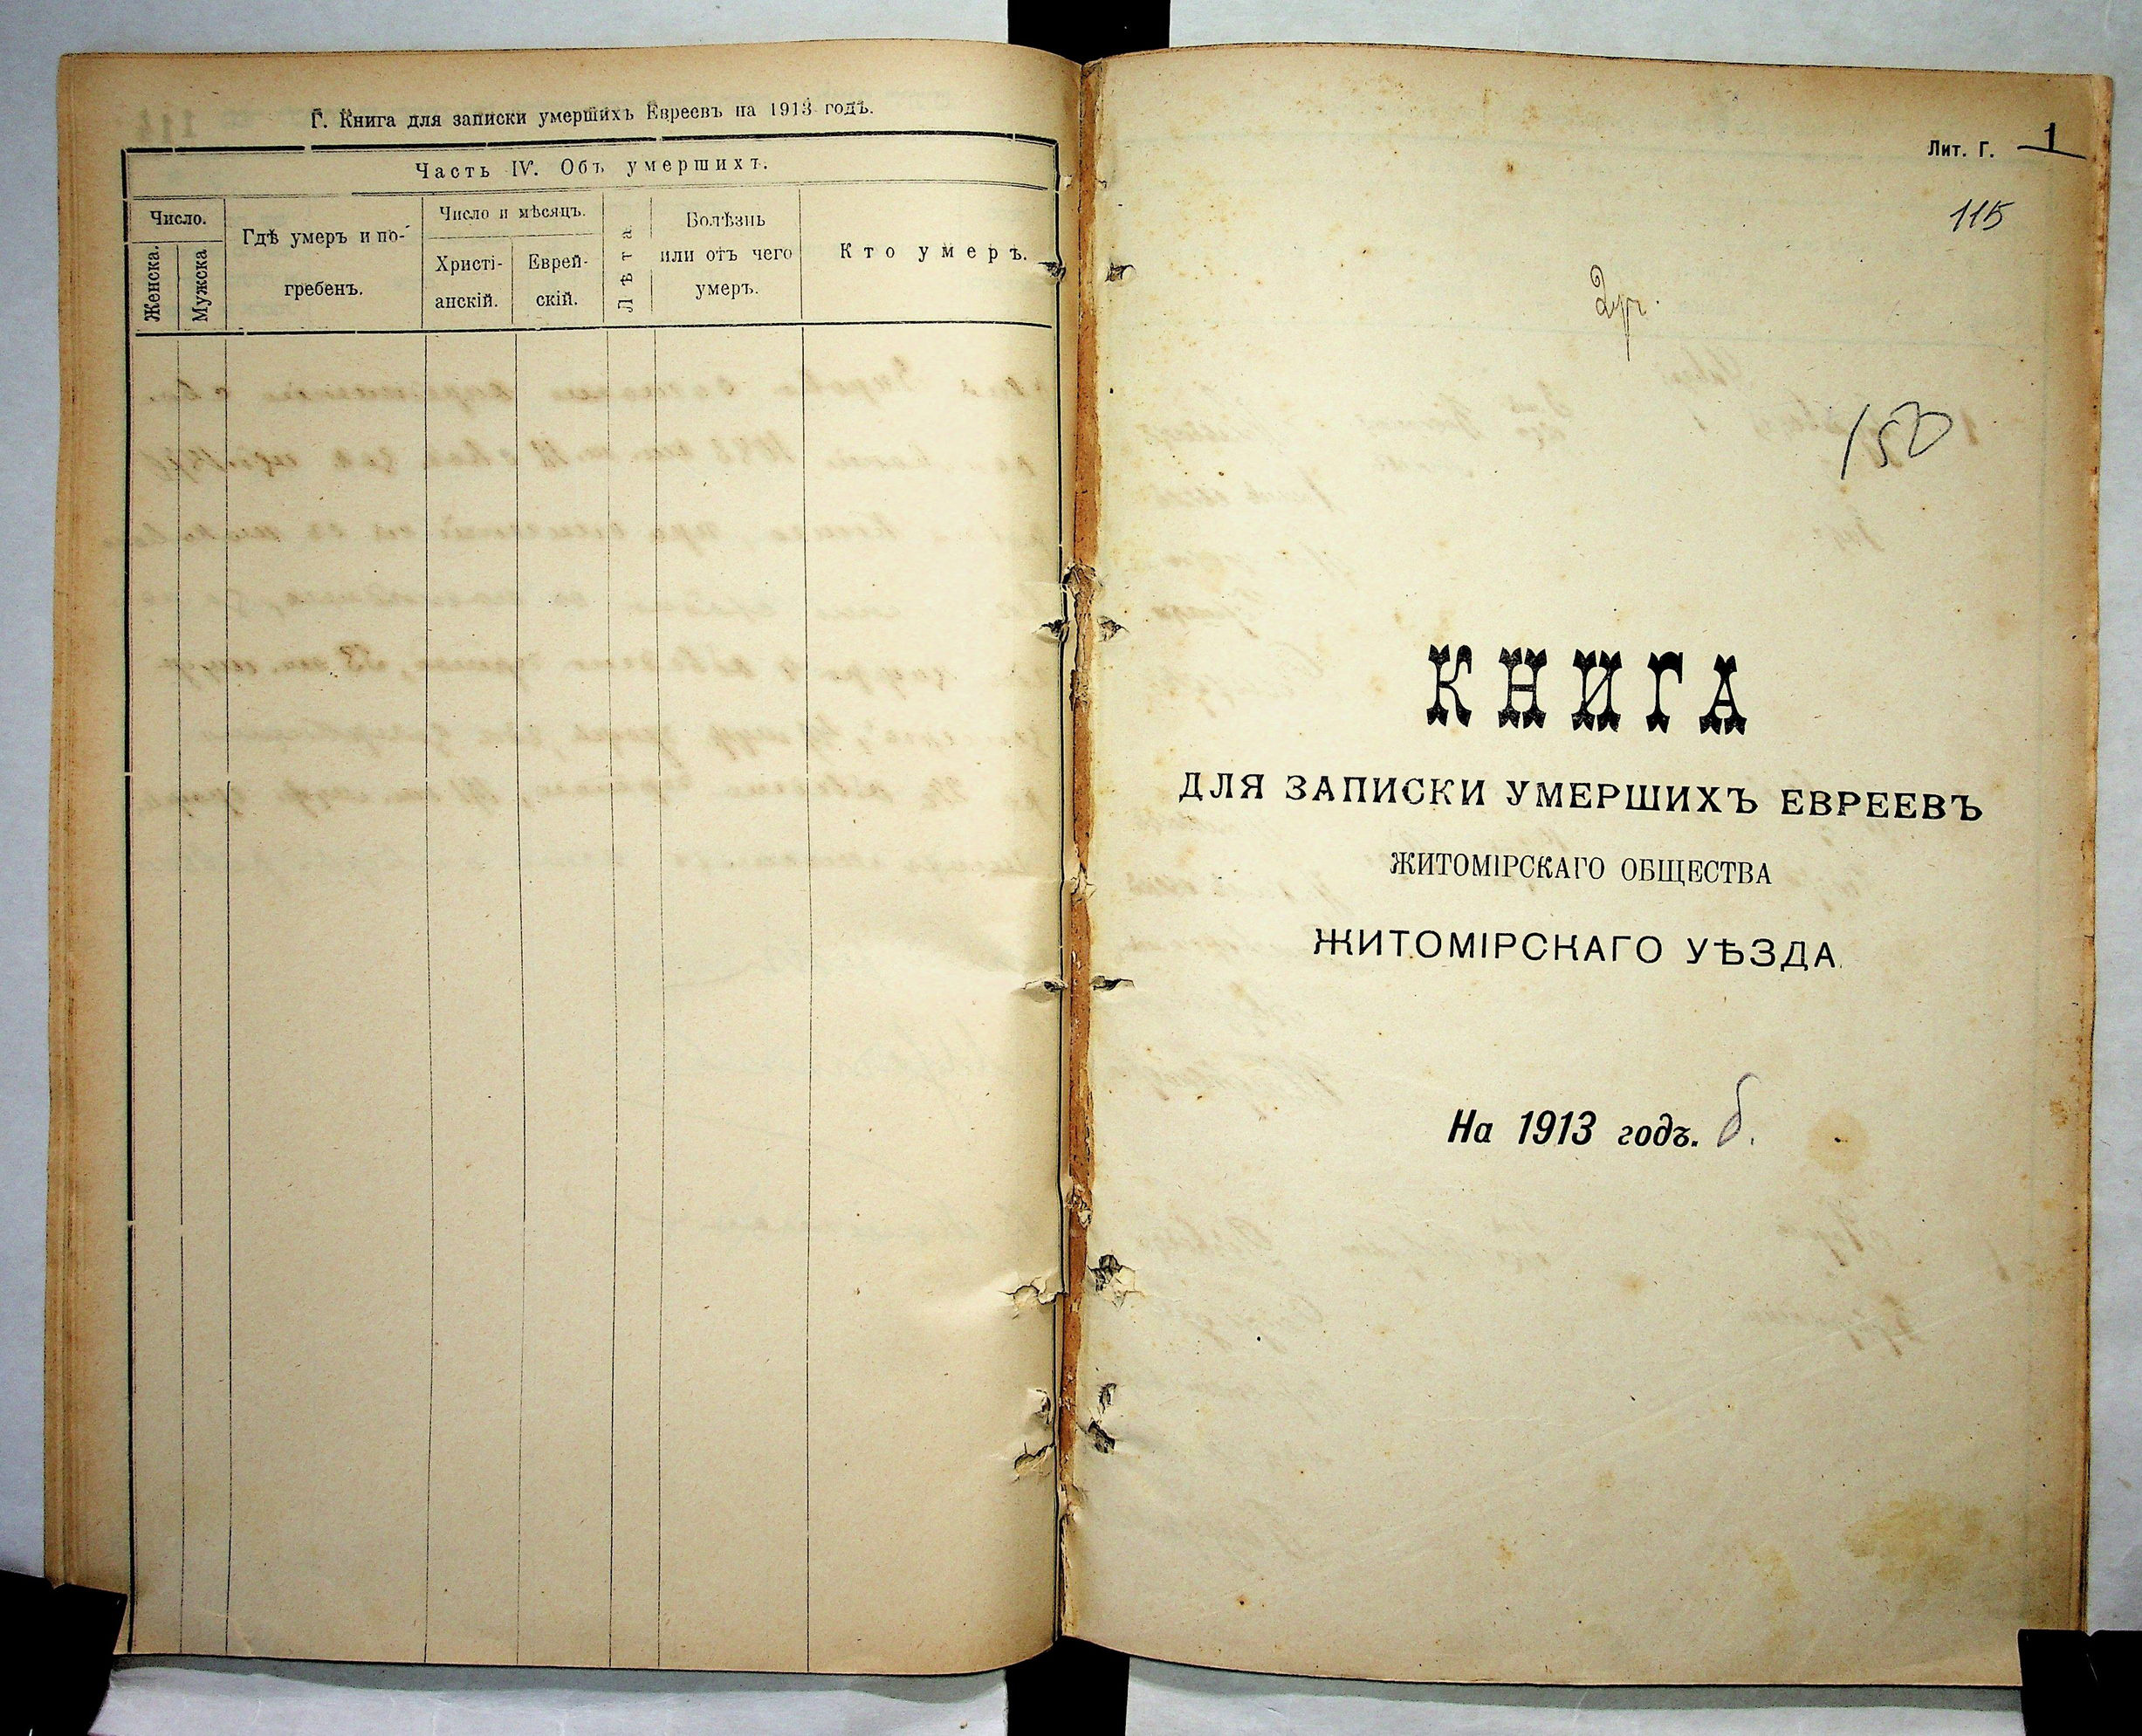 Г. Книга для записки умершихъ Евреевъ на 1913 годъ.
Часть IV. Объ умершихъ.
Число.
Женска.
Мужска
Гдѣ умеръ и по-
гребенъ.
Число и мѣсяцъ.
Христі-
анскій.
Еврей-
скій.
Лѣта
Болѣзнь
или отъ чего
умеръ.
Кто умеръ.
Лит. Г. 1
115
150
КНИГА
ДЛЯ ЗАПИСКИ УМЕРШИХЪ ЕВРЕЕВЪ
ЖИТОМІРСКАГО ОБЩЕСТВА
ЖИТОМІРСКАГО УѢЗДА.
На 1913 годъ. б.